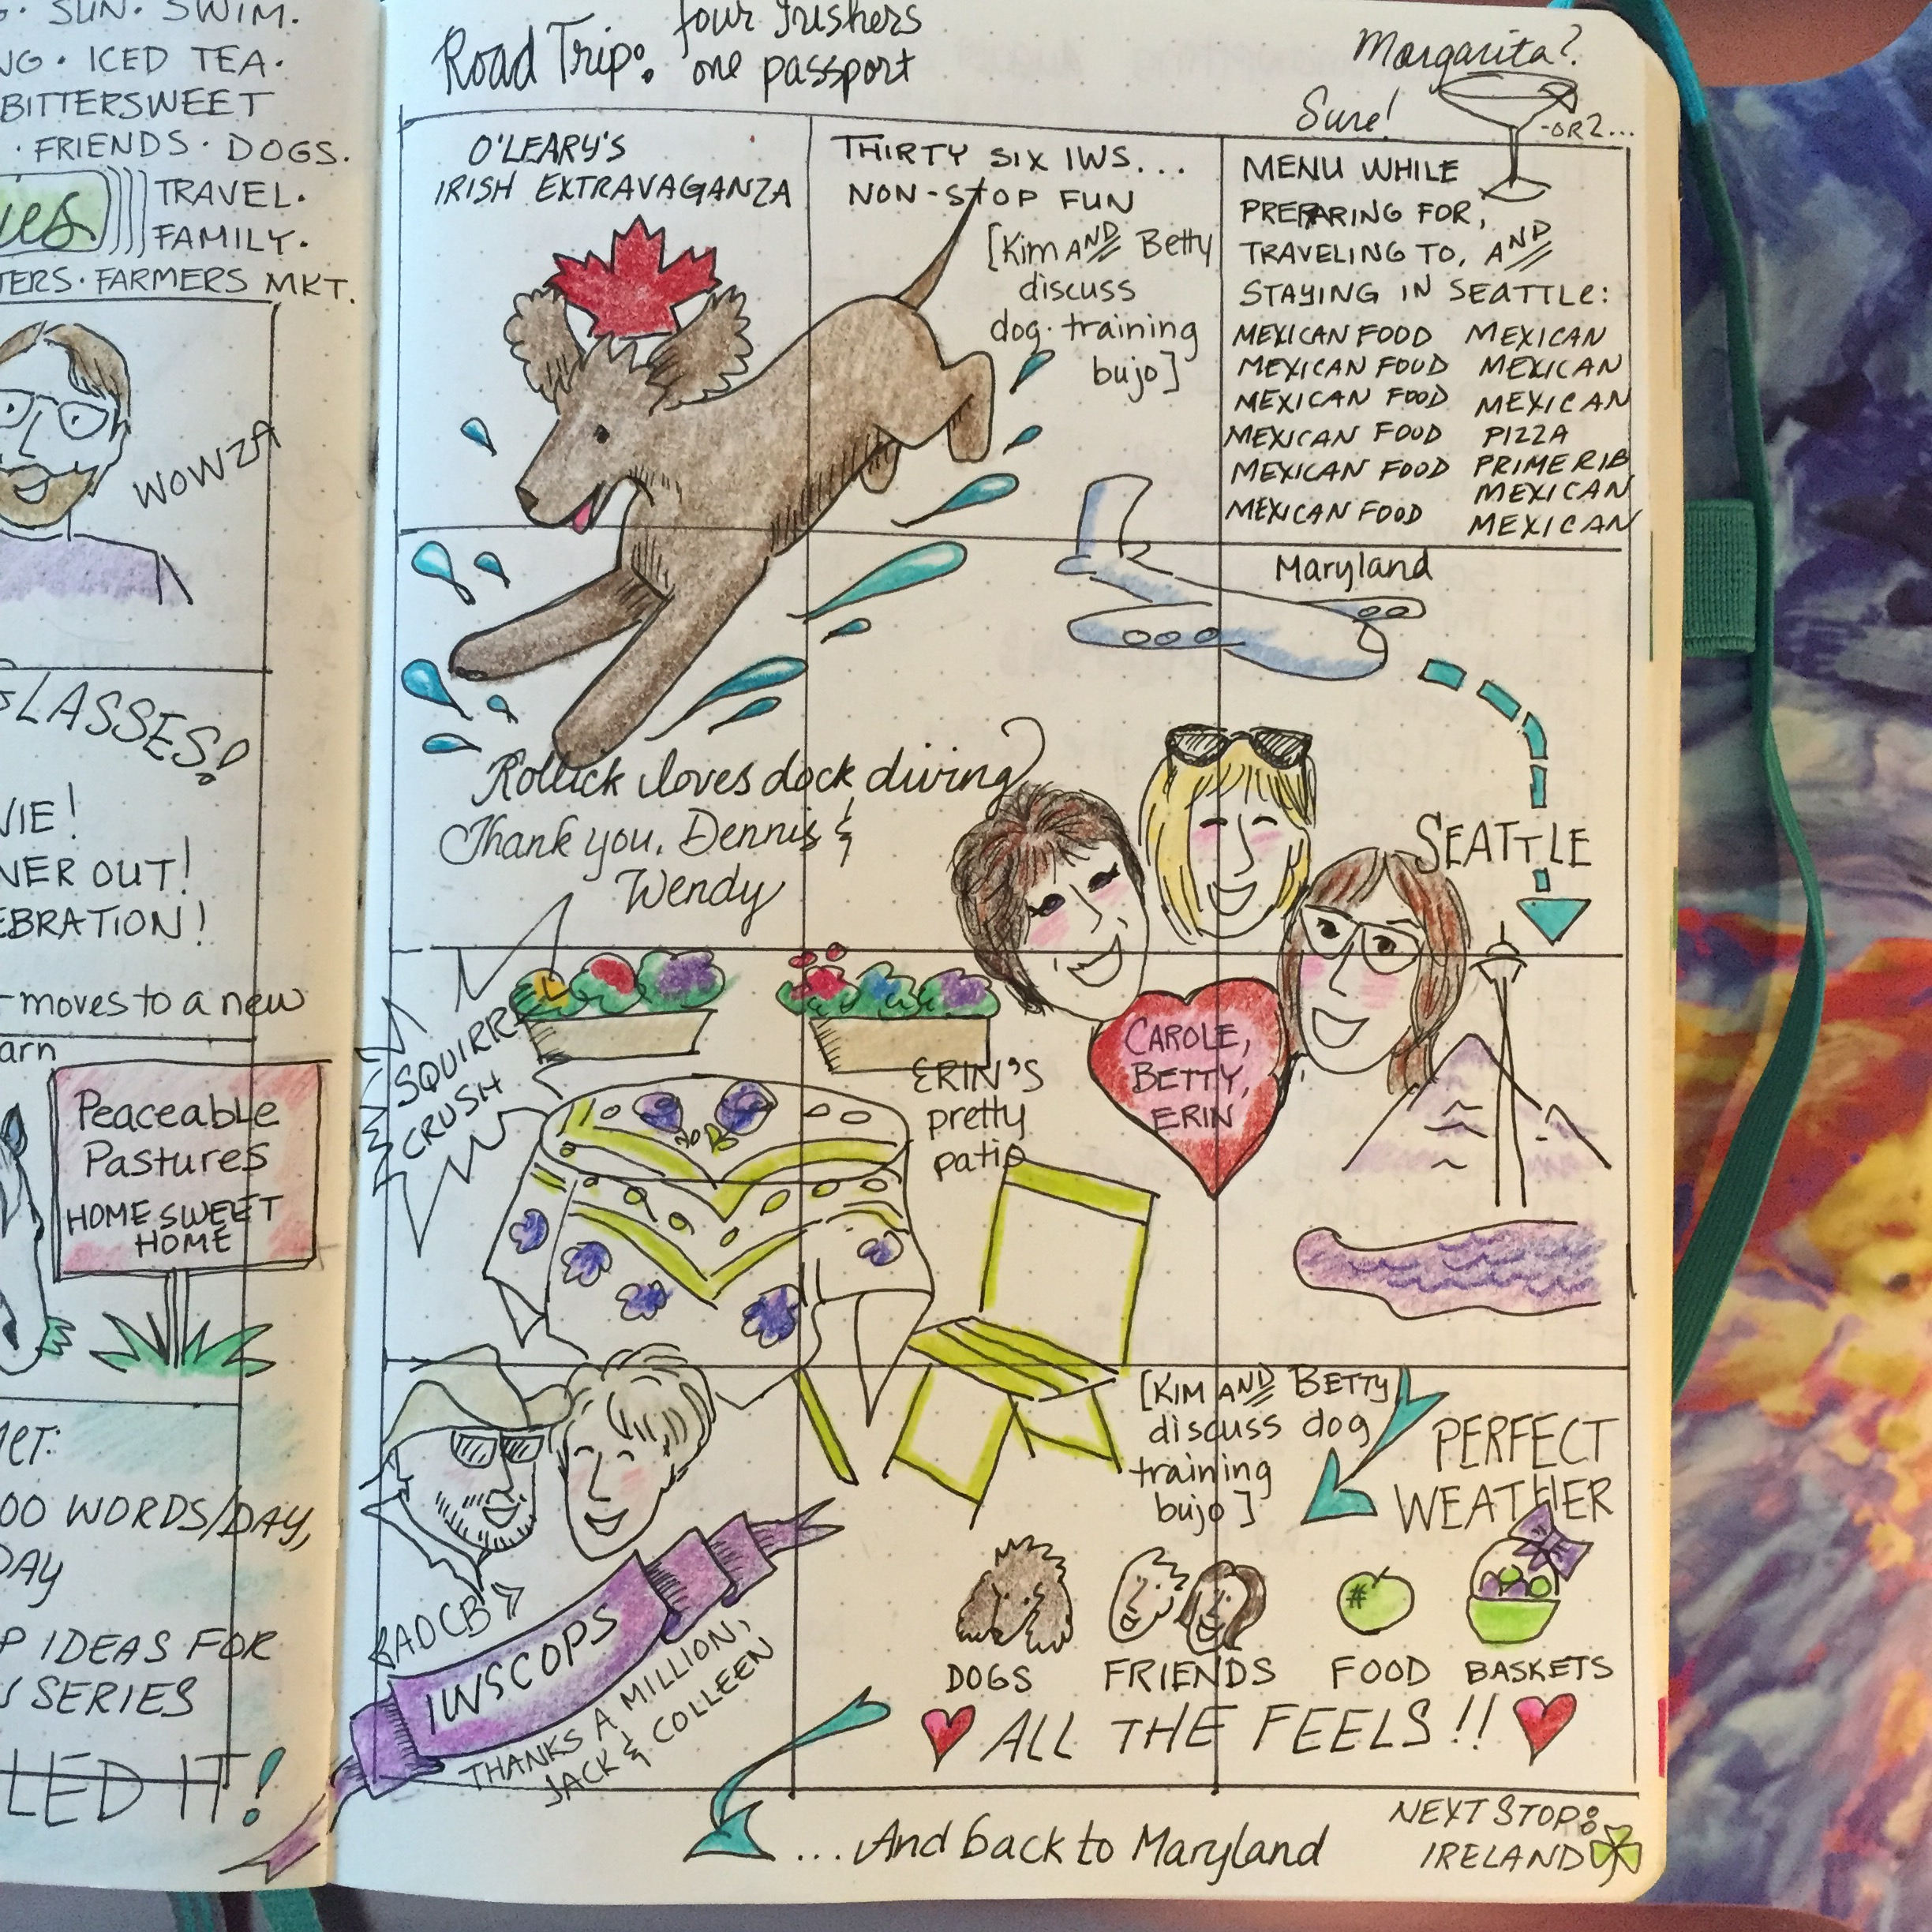 SUN. SWIM.
ICED TEA.
BITTERSWEET
FRIENDS. DOGS.
TRAVEL.
FAMILY.
FARMERS MKT.
WOWZA
GLASSES!
OUT!
moves to a new
Peaceable
Pastures
HOME SWEET
HOME
WORDS/DAY,
DAY
IDEAS FOR
SERIES
IT!
Road Trip: four Irishers
one passport
Margarita?
Sure!
-OR 2...
O'LEARY'S
IRISH EXTRAVAGANZA
THIRTY SIX IWS...
NON-STOP FUN
[Kim AND Betty
discuss
dog.training
bujo]
MENU WHILE
PREPARING FOR,
TRAVELING TO, AND
STAYING IN SEATTLE:
MEXICAN FOOD MEXICAN
MEXICAN FOOD MEXICAN
MEXICAN FOOD MEXICAN
MEXICAN FOOD PIZZA
MEXICAN FOOD PRIME RIB
MEXICAN
MEXICAN FOOD
MEXICAN
Maryland
SEATTLE
Rollick loves dock diving
Thank you, Dennis &
Wendy
SQUIRREL
CRUSH
ERIN'S
pretty
patio
CAROLE,
BETTY,
ERIN
[KIM AND BETTY
discuss dog
training
bujo]
PERFECT
WEATHER
ADCB
IWSCOPS
THANKS A MILLION,
JACK & COLLEEN
#
DOGS FRIENDS FOOD BASKETS
ALL THE FEELS!!
...And back to Maryland
NEXT STOP:
IRELAND